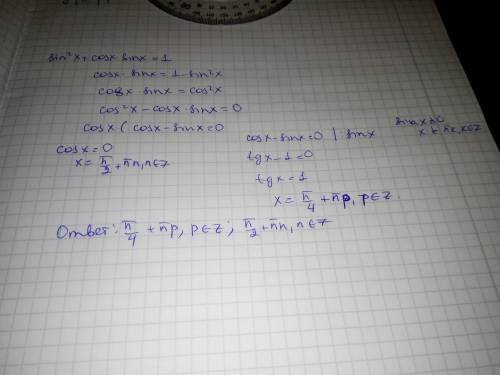 sin²x + cosx sinx = 1
cosx · sinx = 1 - sin²x
cosx · sinx = cos²x
cos²x - cosx · sinx = 0
cosx ( cosx - sinx = 0
cosx = 0
x = π/2 + πn, n∈Z
cosx - sinx = 0 | : sinx
sinx ≠ 0
x ≠ πk, k∈Z
tgx - 1 = 0
tgx = 1
x = π/4 + πp, p∈Z.
Ответ: π/4 + πp, p∈Z; π/2 + πn, n∈Z